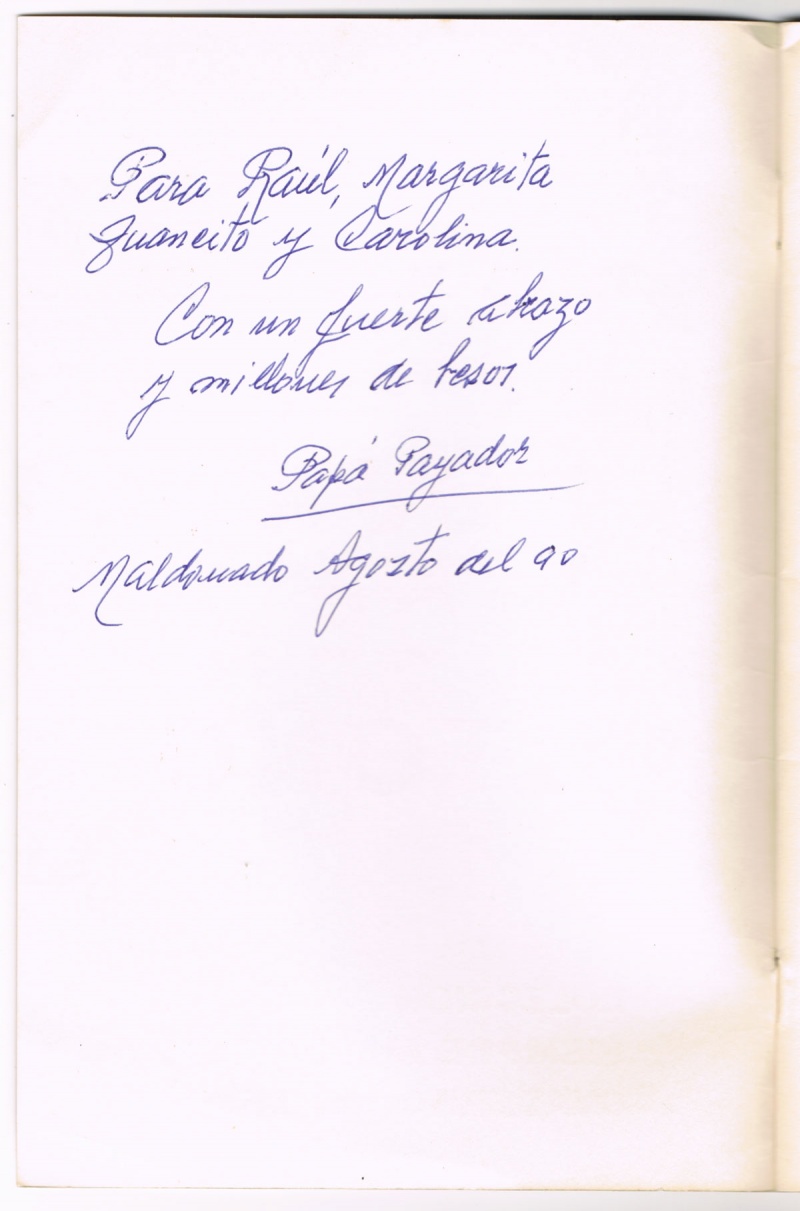 Para Raúl, Margarita
Juancito y Carolina.
Con un fuerte abrazo
y millones de besos.
Papá Payador
Maldonado Agosto del 90